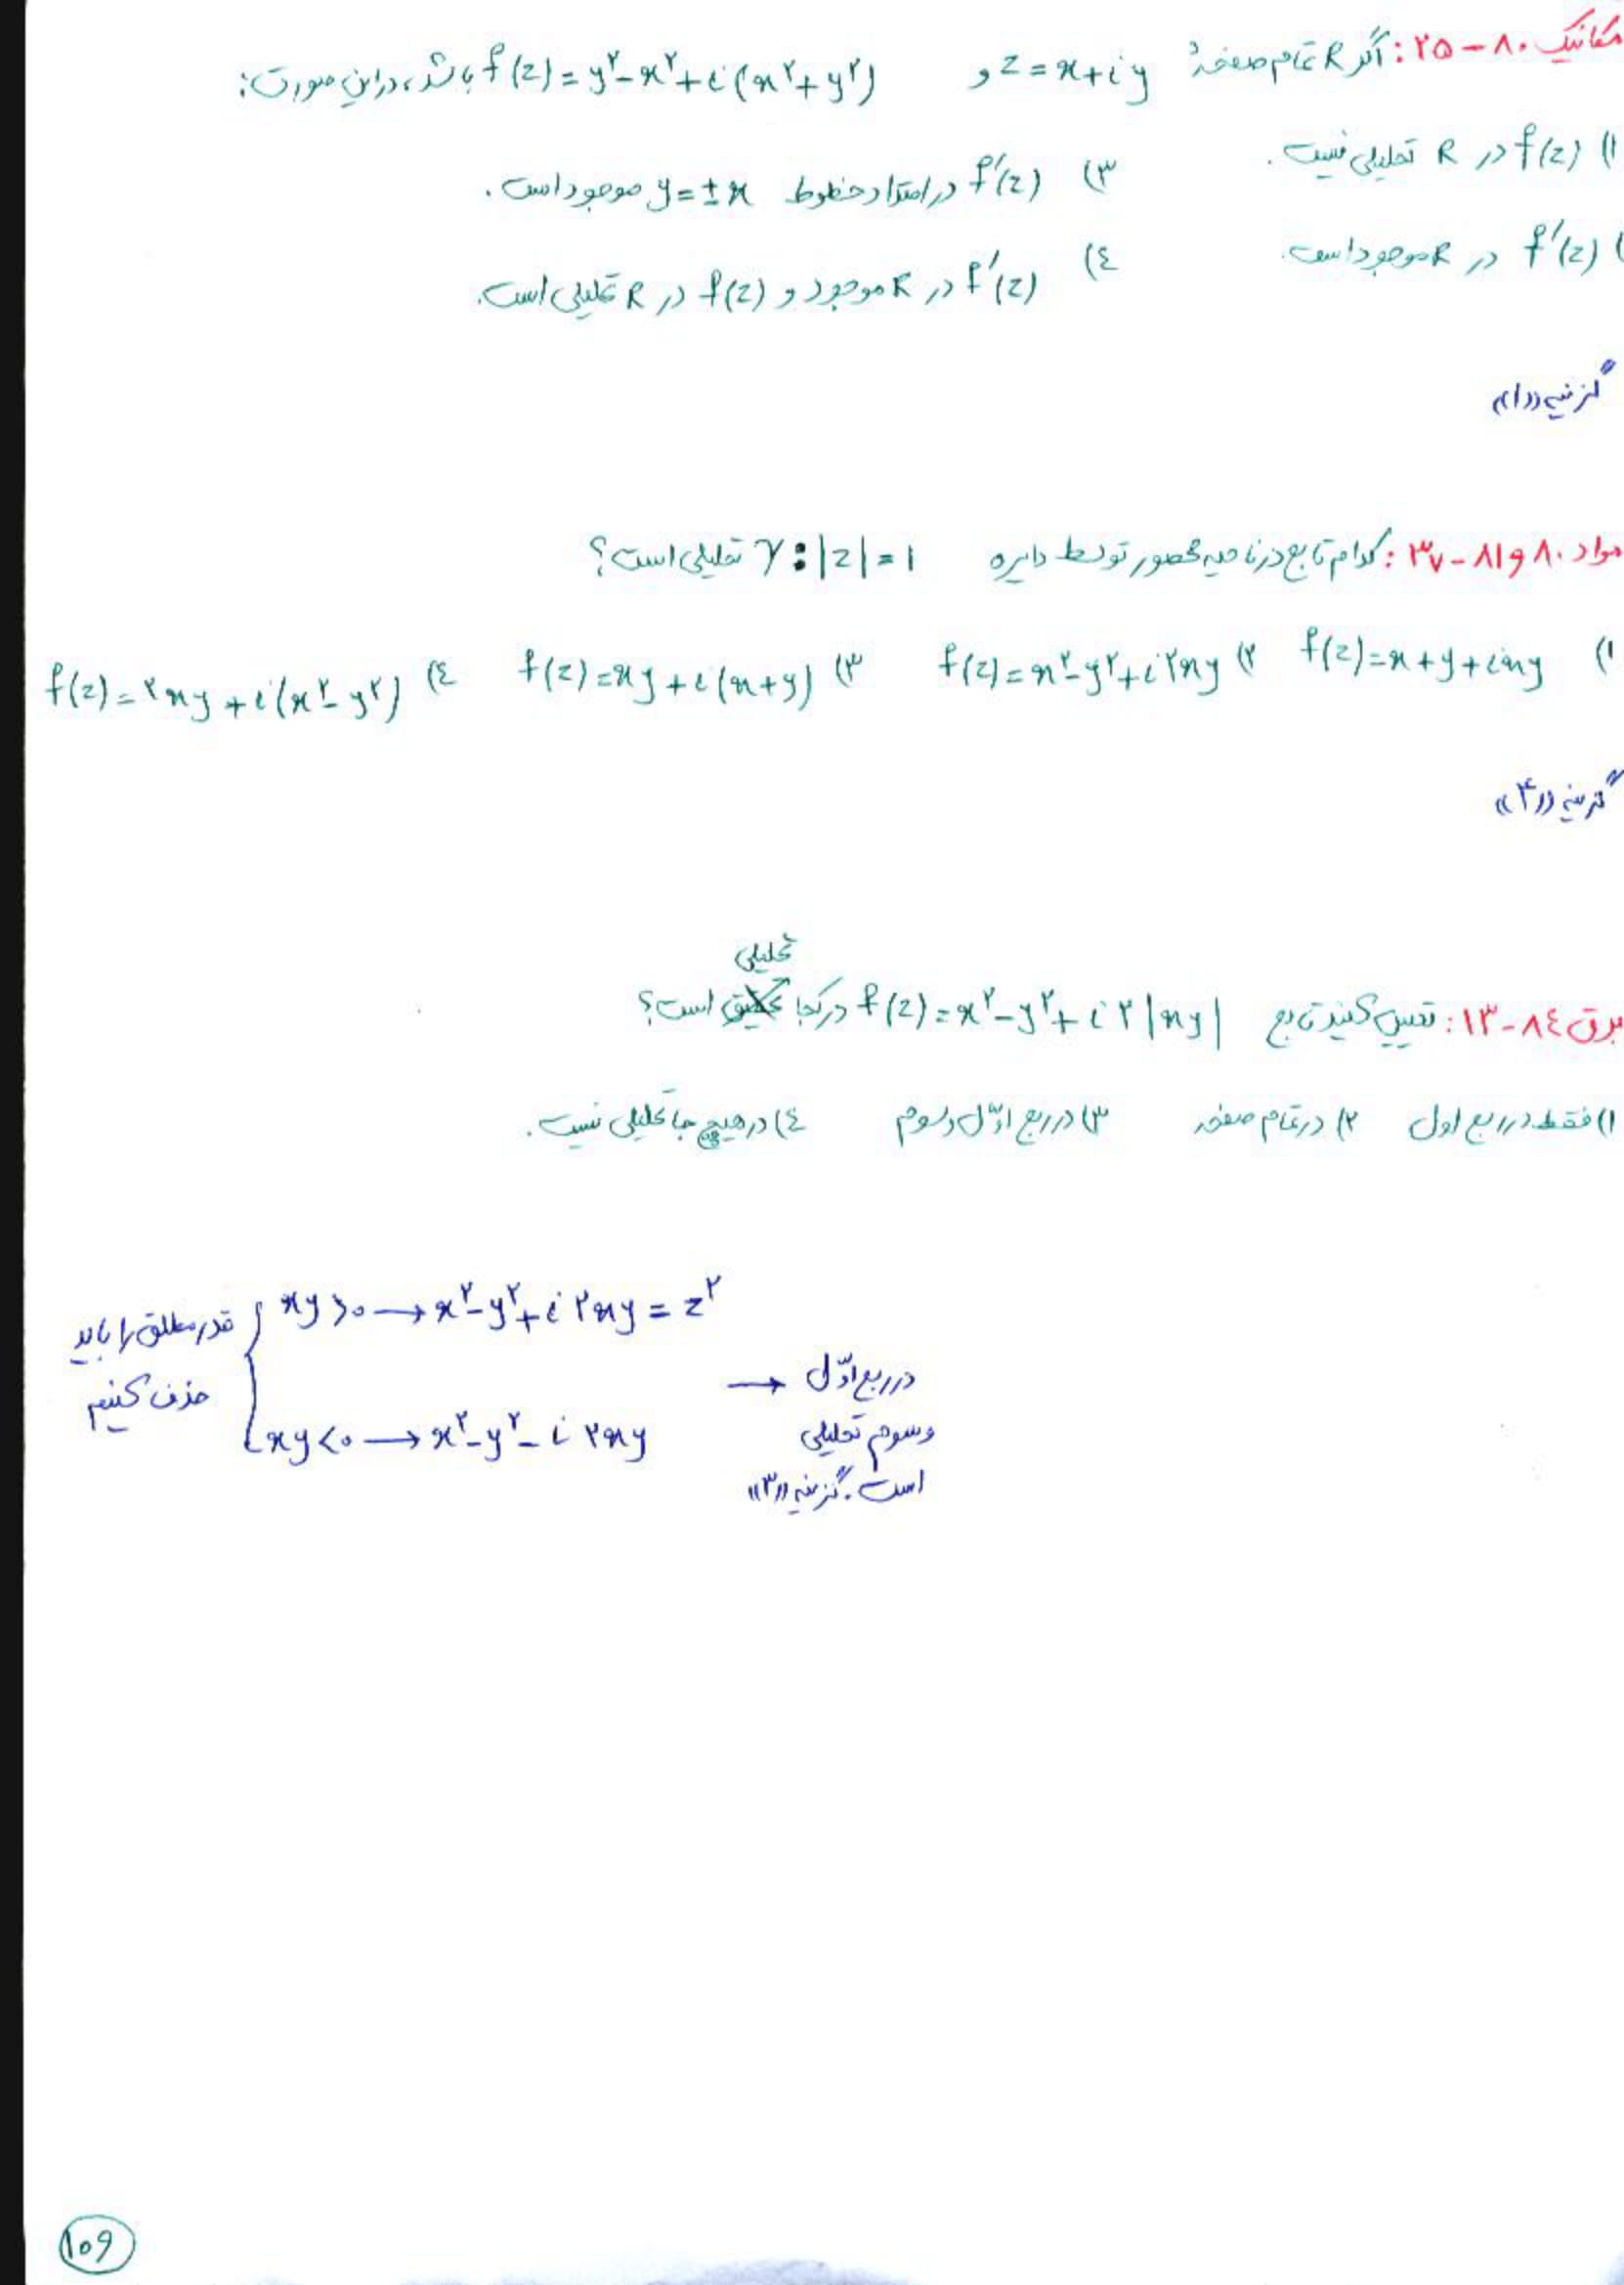 مکانیک ۸۰ - ۲۵ : اگر R تمام صفحهٔ z = x + iy و f(z) = y² - x² + i(x² + y²) باشد، در این صورت:
۱) f(z) در R تحلیلی نیست.
۳) f′(z) در امتداد خطوط y = ± x موجود است.
) f′(z) در R موجود است.
٤) f′(z) در R موجود و f(z) در R تحلیلی است.
گزینه «۱»
مواد ۸۰ و ۸۱ - ۳۷ : کدام تابع در ناحیه محصور توسط دایره γ : |z| = ۱ تحلیلی است؟
۱) f(z) = x + y + ixy ۲) f(z) = x² - y² + i۲xy ۳) f(z) = xy + i(x + y) ٤) f(z) = ۲xy + i(x² - y²)
گزینه «۴»
تحلیلی
برق ۸٤ - ۱۳ : تعیین کنید تابع f(z) = x² - y² + i۲|xy| در کجا است؟
۱) فقط در ربع اول ۲) در تمام صفحه ۳) در ربع اوّل و سوم ٤) در هیچ جا تحلیلی نیست.
قدر مطلق را باید حذف کنیم
xy > ۰ → x² - y² + i۲xy = z²
xy < ۰ → x² - y² - i۲xy
→ در ربع اوّل
و سوم تحلیلی
است. گزینه «۳»
۱۰۹